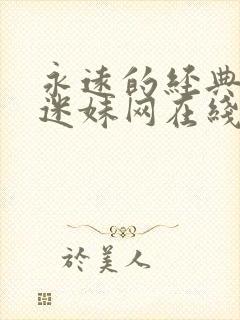 永遠的經典
迷妹网在綫
於美人